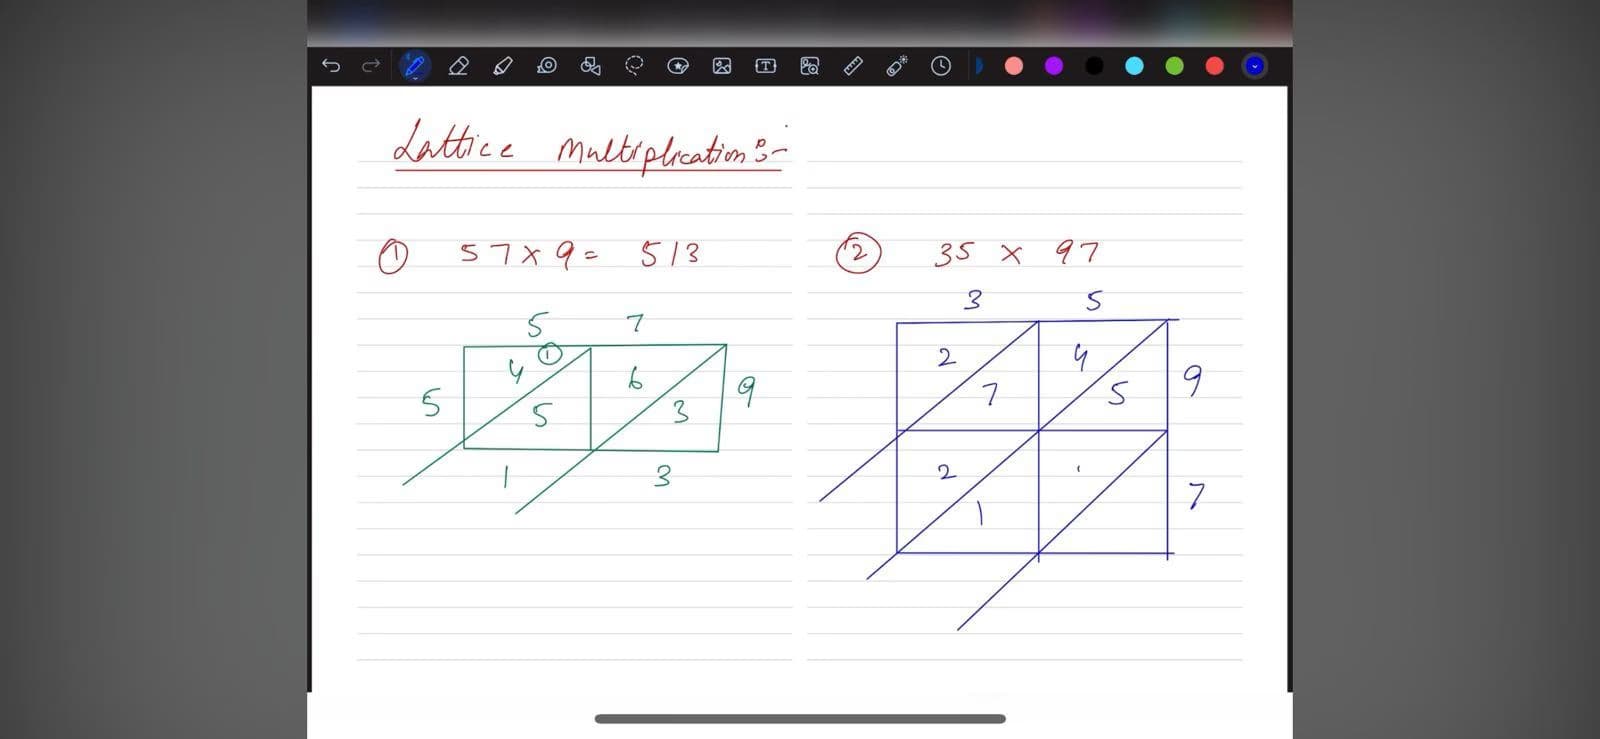 Lattice Multiplication :-
① 57 x 9 = 513
5 7
4 ① 6
5 9
5 3
1 3
② 35 x 97
3 5
2 4
7 5 9
2
1 7